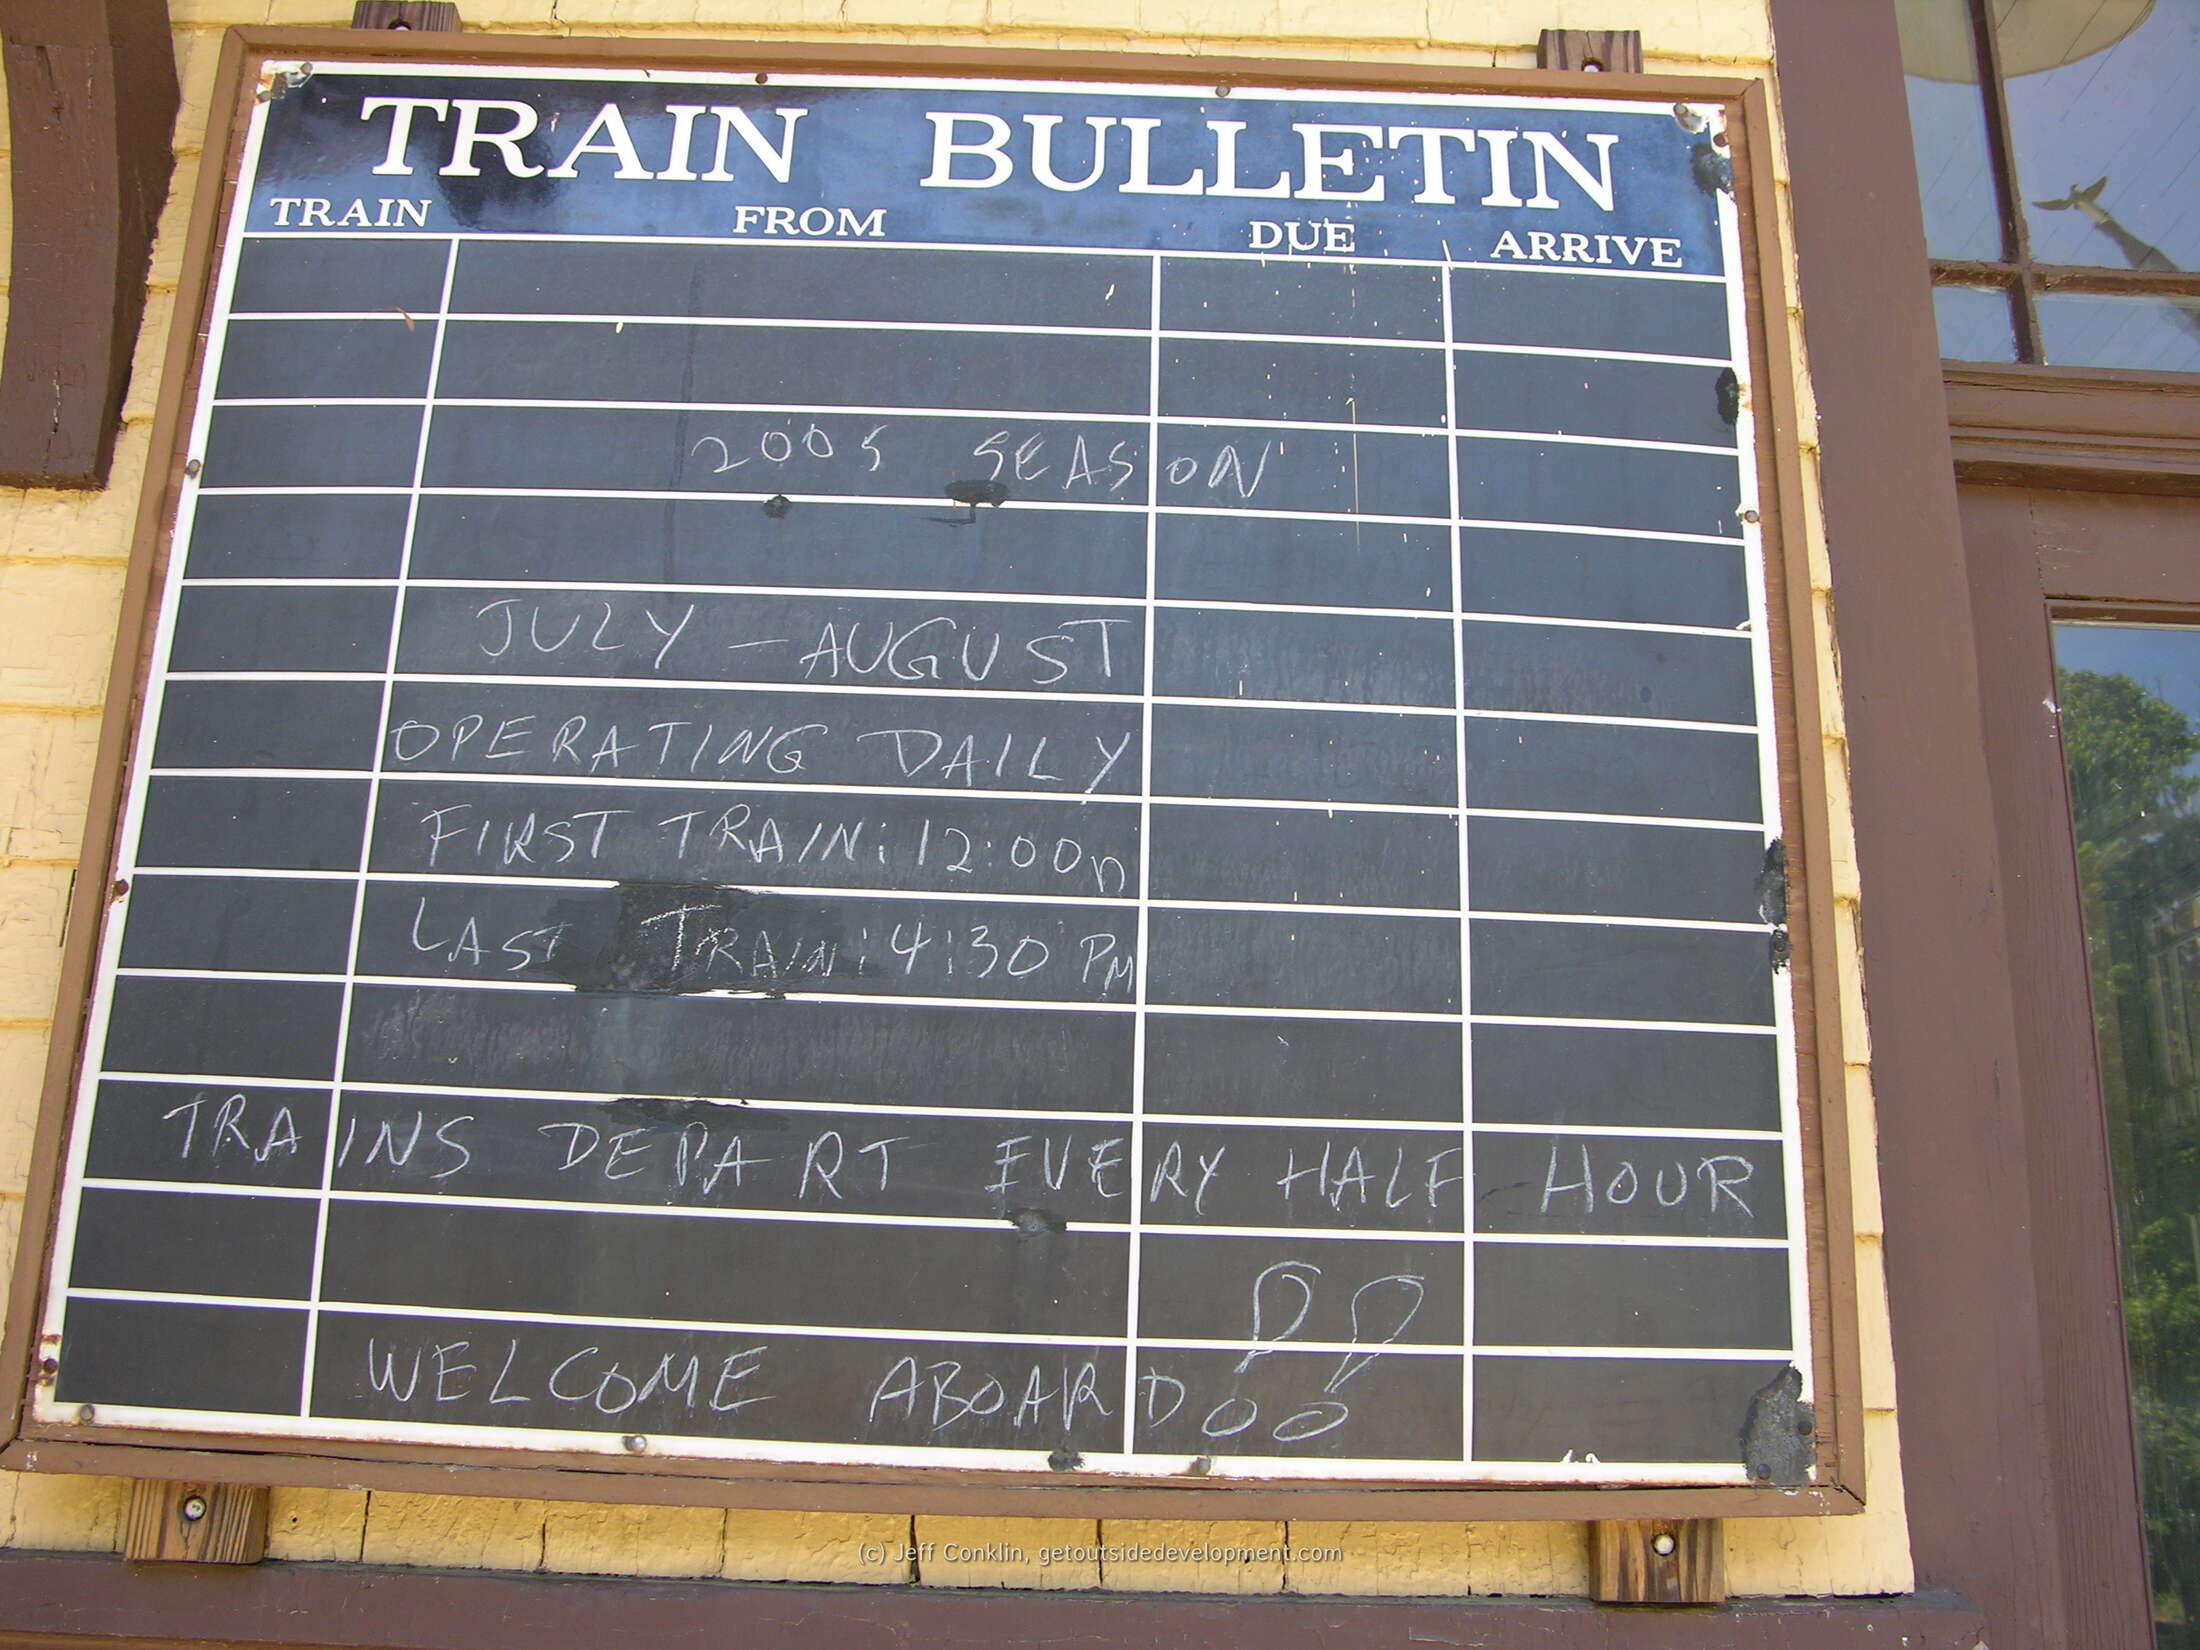 TRAIN BULLETIN
TRAIN FROM DUE ARRIVE
2005 SEASON
JULY - AUGUST
OPERATING DAILY
FIRST TRAIN: 12:00n
LAST TRAIN: 4:30 PM
TRAINS DEPART EVERY HALF HOUR
WELCOME ABOARD!!
(c) Jeff Conklin, getoutsidedevelopment.com